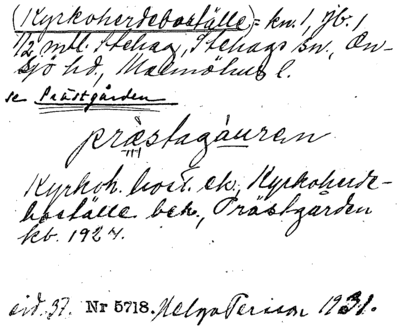 (Kyrkoherdebostället) = kn. 1, jb. 1
1/2 mtl. Stehag, Stehags sn, On-
sjö hd, Malmöhus l.
se Prästgården
prästagåuren
Kyrkoh. bost. ek., Kyrkoherde-
boställe bek., Prästgården
kb. 1927.
Nr 5718. Helga Persson 1931.